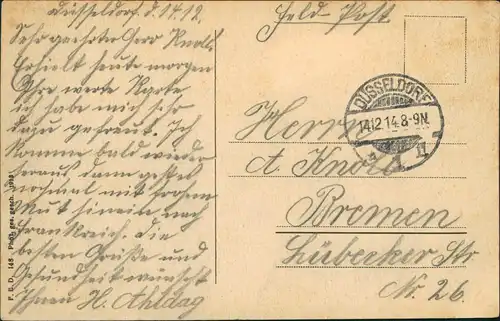 Düsseldorf. d. 14.12.
Sehr geehrter Herr Knoll.
Erhielt heute morgen
Ihre werte Karte
ich habe mich sehr
dazu gefreut. Ich
komme bald wieder
heraus, dann geht
nochmal mit frohem
Mut hinein nach
Frankreich. Die
besten Grüße und
Gesundheit wünscht
Ihnen H. Ahldag
Feld-Post
DÜSSELDORF
14.12.14.8-9N.
Herrn
A. Knoll
Bremen
Lübecker Str.
Nr. 26.